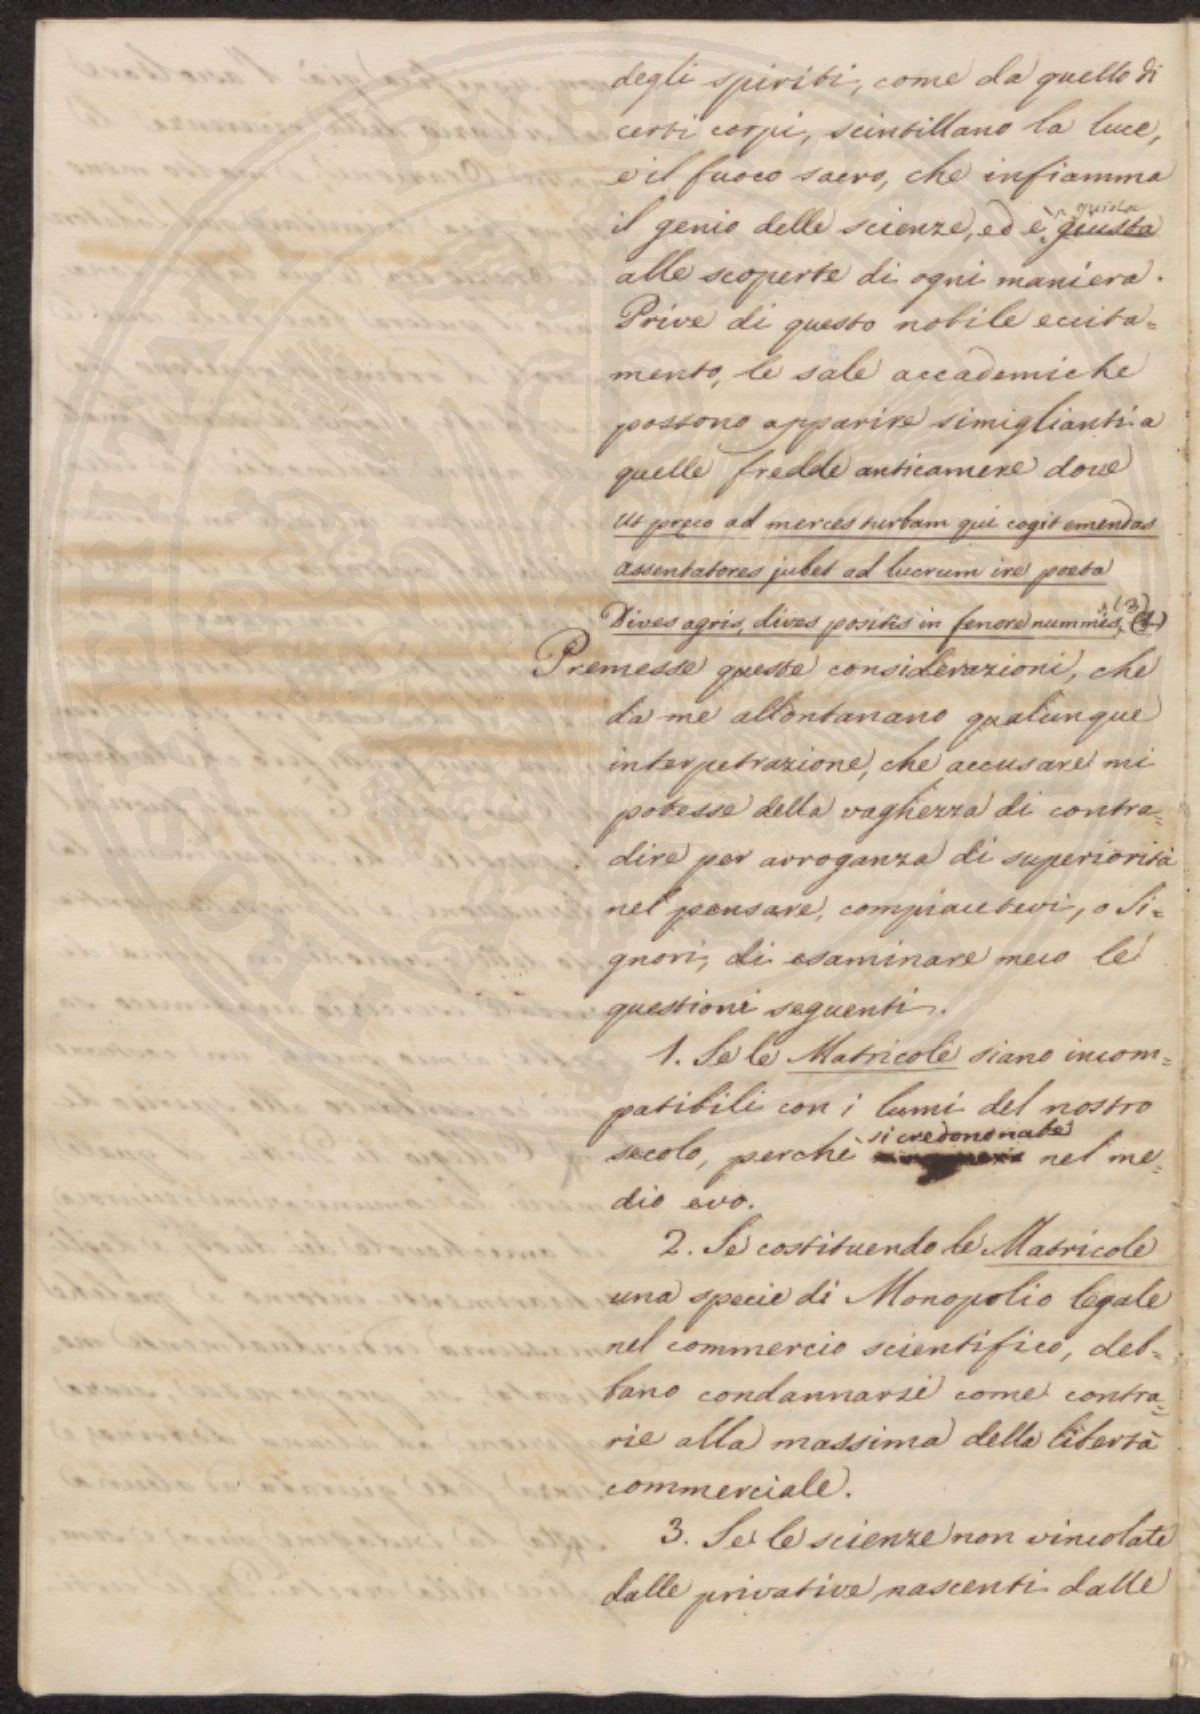 degli spiriti, come da quello di
certi corpi, scintillano la luce,
e il fuoco sacro, che infiamma
il genio delle scienze, ed è guida giusta
alle scoperte di ogni maniera.
Prive di questo nobile eccita=
mento, le sale accademiche
possono apparire simiglianti a
quelle fredde anticamere dove
Ut præco ad merces turbam qui cogit emendas
assentatores jubet ad lucrum ire poeta
Dives agris, dives positis in fenore nummis, (3)
Premesse queste considerazioni, che
da me allontanano qualunque
interpetrazione, che accusare mi
potesse della vaghezza di contra=
dire per arroganza di superiorità
nel pensare, compiacetevi, o Si=
gnori, di esaminare meco le
questioni seguenti.
1. Se le Matricole siano incom=
patibili con i lumi del nostro
secolo, perchè si credono nate nel me=
dio evo.
2. Se costituendo le Matricole
una specie di Monopolio legale
nel commercio scientifico, deb=
bano condannarsi come contra=
rie alla massima della libertà
commerciale.
3. Se le scienze non vincolate
dalle privative, nascenti dalle